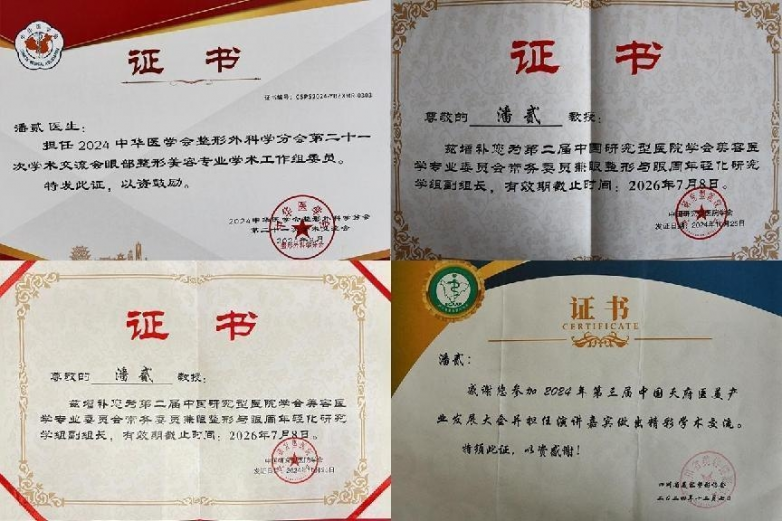 证书
证书编号：
潘贰医生：
担任2024中华医学会整形外科学分会第二十一
次学术交流会眼部整形美容专业学术工作组委员。
特发此证，以资鼓励。
2024中华医学会整形外科学分会
证书
尊敬的 潘贰 教授：
兹增补您为第二届中国研究型医院学会美容医
学专业委员会常务委员兼眼整形与眼周年轻化研究
学组副组长，有效期截止时间：2026年7月8日。
发证日期：2024年10月25日
证书
尊敬的 潘贰 教授：
兹增补您为第二届中国研究型医院学会美容医
学专业委员会常务委员兼眼整形与眼周年轻化研究
学组副组长，有效期截止时间：2026年7月8日。
证书
CERTIFICATE
潘贰：
感谢您参加2024年第三届中国天府医美产
业发展大会并担任演讲嘉宾做出精彩学术交流。
特颁此证，以资感谢！